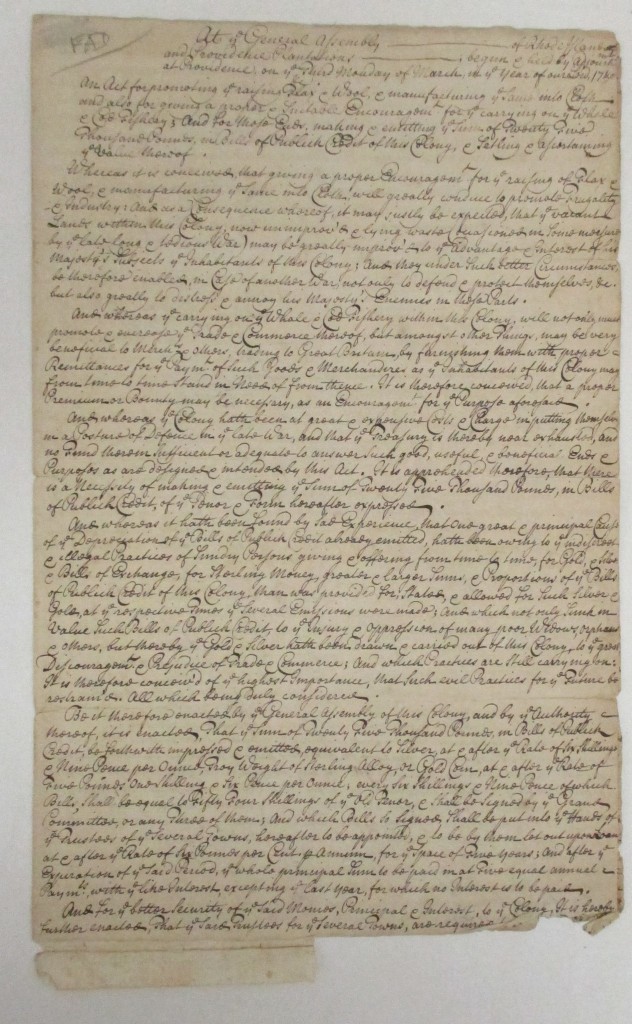 At ye General Assembly of Rhode Island
and Providence Plantations begun & held by adjournmt
at Providence, on ye Third Monday of March, in ye Year of our Lord 1750
An Act for promoting ye raising Flax & Wool, & manufacturing ye Same into Cloth
and also for giving a proper & Suitable Encouragemt for ye carrying on ye Whale
& Cod Fishery; And for those Ends, making & emitting ye Sum of Twenty Five
Thousand Pounds, in Bills of Publick Credit of this Colony, & Setting & ascertaining
ye Value thereof.
Whereas it is conceived, that giving a proper Encouragemt for ye raising of Flax &
Wool, & manufacturing ye Same into Cloth, will greatly conduce to promote Frugality
& Industry: And as a Consequence whereof, it may justly be expected, that ye vacant
Lands within this Colony, now unimprov'd & lying waste (occasioned in Some measure
by ye late long & tedious War) may be greatly improv'd to ye Advantage & Interest of his
Majesty's Subjects ye Inhabitants of this Colony; And they under Such better Circumstances,
be thereby enabled, in Case of another War, not only to defend & protect themselves, &c.
but also greatly to distress & annoy his Majesty's Enemies in these Parts.
And whereas ye carrying on ye Whale & Cod Fishery within this Colony, will not only much
promote & encrease ye Trade & Commerce thereof, but amongst other Things, may be very
beneficial to Mercht & others, trading to Great Britain, by furnishing them with proper
Remittances for ye Paymt of Such Goods & Merchandize, as ye Inhabitants of this Colony may
from time to time Stand in Need of from thence. It is therefore, conceived, that a proper
Premium or Bounty may be necessary, as an Encouragemt for ye Purpose aforesaid.
And whereas ye Colony hath been at great & expensive Costs & Charge in putting themselves
in a Posture of Defence in ye late War, and that ye Treasury is thereby near exhausted, and
no Fund therein Sufficient or adequate to answer Such good, useful, & beneficial Ends &
Purposes as are designed & intended by this Act, It is apprehended therefore, that there
is a Necessity of making & emitting ye Sum of Twenty Five Thousand Pounds, in Bills
of Publick Credit, of ye Tenor & Form hereafter expressed.
And whereas it hath been found by Sad Experience, that one great & principal Cause
of ye Depreciation of ye Bills of Publick Credit already emitted, hath been owing to ye indiscreet
& illegal Practices of Sundry Persons giving & offering from time to time, for Gold, Silver
& Bills of Exchange, for Sterling Money, greater & larger Sums, & Proportions of ye Bills
of Publick Credit of this Colony, than was provided for, Stated & allowed for Such Silver &
Gold, at ye respective Times ye Several Emissions were made; And which not only Sunk in
Value Such Bills of Publick Credit, to ye Injury & Oppression of many poor Widows, orphans
& others, but thereby ye Gold & Silver hath been drawn & carried out of this Colony, to ye great
Discouragemt & Prejudice of Trade & Commerce; And which Practices are Still carrying on:
It is therefore conceiv'd of ye highest Importance, that Such evil Practices for ye Future be
restrain'd. All which being duly considered
Be it therefore enacted by ye General Assembly of this Colony, and by ye Authority
thereof, it is enacted, That ye Sum of Twenty Five Thousand Pounds, in Bills of Publick
Credit, be forthwith impressed & emitted, equivalent to Silver, at & after ye Rate of Six Shillings
& Nine Pence per Ounce, Troy Weight of Sterling Alloy, or Gold Coin, at & after ye Rate of
Five Pounds One Shilling & Six Pence per Ounce, every Six Shillings & Nine Pence of which
Bills, Shall be equal to Fifty Four Shillings of ye Old Tenor, & Shall be Signed by ye Grand
Committee, or any Three of them; And which Bills So Signed, Shall be put into ye Hands of
ye Trustees of ye Several Towns, hereafter to be appointed, & to be by them let out upon Loan
at & after ye Rate of Pounds per Cent. Annum, for ye Space of Five Years; And after ye
Expiration of ye Said Period, ye whole principal Sum to be paid in at Five equal annual
Paymts, with ye like Interest, excepting ye last Year, for which no Interest is to be paid.
And for ye better Security of ye Said Monies, Principal & Interest, to ye Colony, It is hereby
further enacted, That ye Said Trustees for ye Several Towns, are required